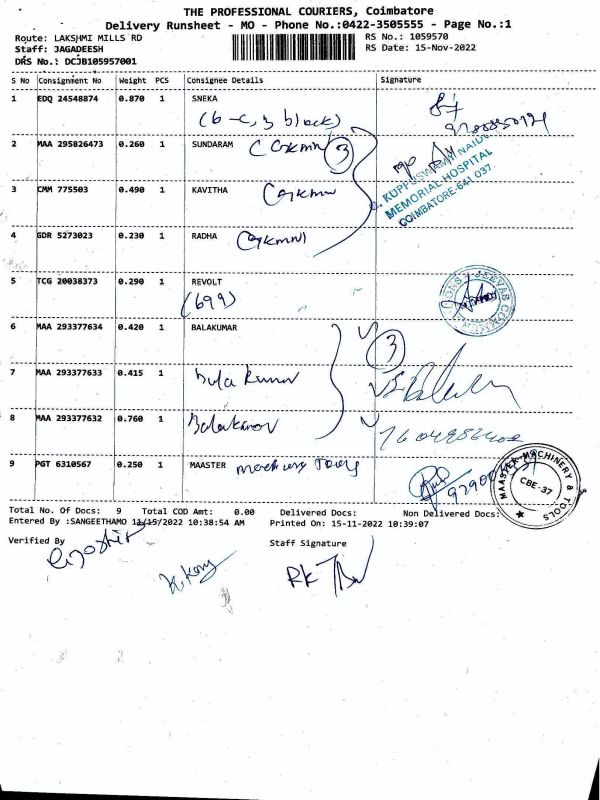 THE PROFESSIONAL COURIERS, Coimbatore
Delivery Runsheet - MO - Phone No.:0422-3505555 - Page No.:1
Route: LAKSHMI MILLS RD RS No.: 1059570
Staff: JAGADEESH RS Date: 15-Nov-2022
DRS No.: DCJB105957001
S No Consignment No Weight PCS Consignee Details Signature
1 EDQ 24548874 0.870 1 SNEKA
(b-c, 3 block)
2 MAA 295826473 0.260 1 SUNDARAM
3
KUPPUSWAMY NAIDU
MEMORIAL HOSPITAL
COIMBATORE-641 037.
3 CMM 775503 0.490 1 KAVITHA
4 GDR 5273023 0.230 1 RADHA
5 TCG 20038373 0.290 1 REVOLT
(699)
6 MAA 293377634 0.420 1 BALAKUMAR
3
7 MAA 293377633 0.415 1 Bala kumar
8 MAA 293377632 0.760 1 Balakumar
9 PGT 6310567 0.250 1 MAASTER machinery Tools
MAASTER MACHINERY & TOOLS
CBE-37
Total No. Of Docs: 9 Total COD Amt: 0.00 Delivered Docs: Non Delivered Docs:
Entered By :SANGEETHAMO 11/15/2022 10:38:54 AM Printed On: 15-11-2022 10:39:07
Verified By Staff Signature